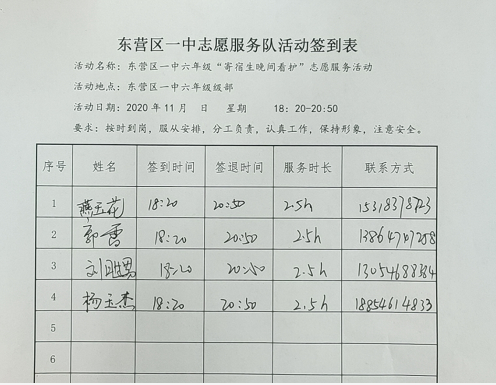 东营区一中志愿服务队活动签到表
活动名称：东营区一中六年级“寄宿生晚间看护”志愿服务活动
活动地点：东营区一中六年级级部
活动日期：2020年11月 日 星期 18：20-20:50
要求：按时到岗，服从安排，分工负责，认真工作，保持形象，注意安全。
序号 姓名 签到时间 签退时间 服务时长 联系方式
1 燕玉花 18:20 20:50 2.5h
2 郭雪 18:20 20:50 2.5h
3 刘 18:20 20:50 2.5h
4 杨玉杰 18:20 20:50 2.5h 18854614833
5
6